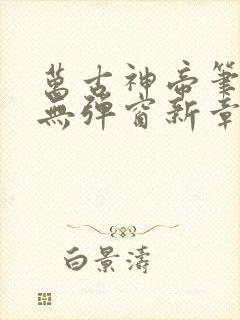 萬古神帝筆
無彈窗新章
白景濤